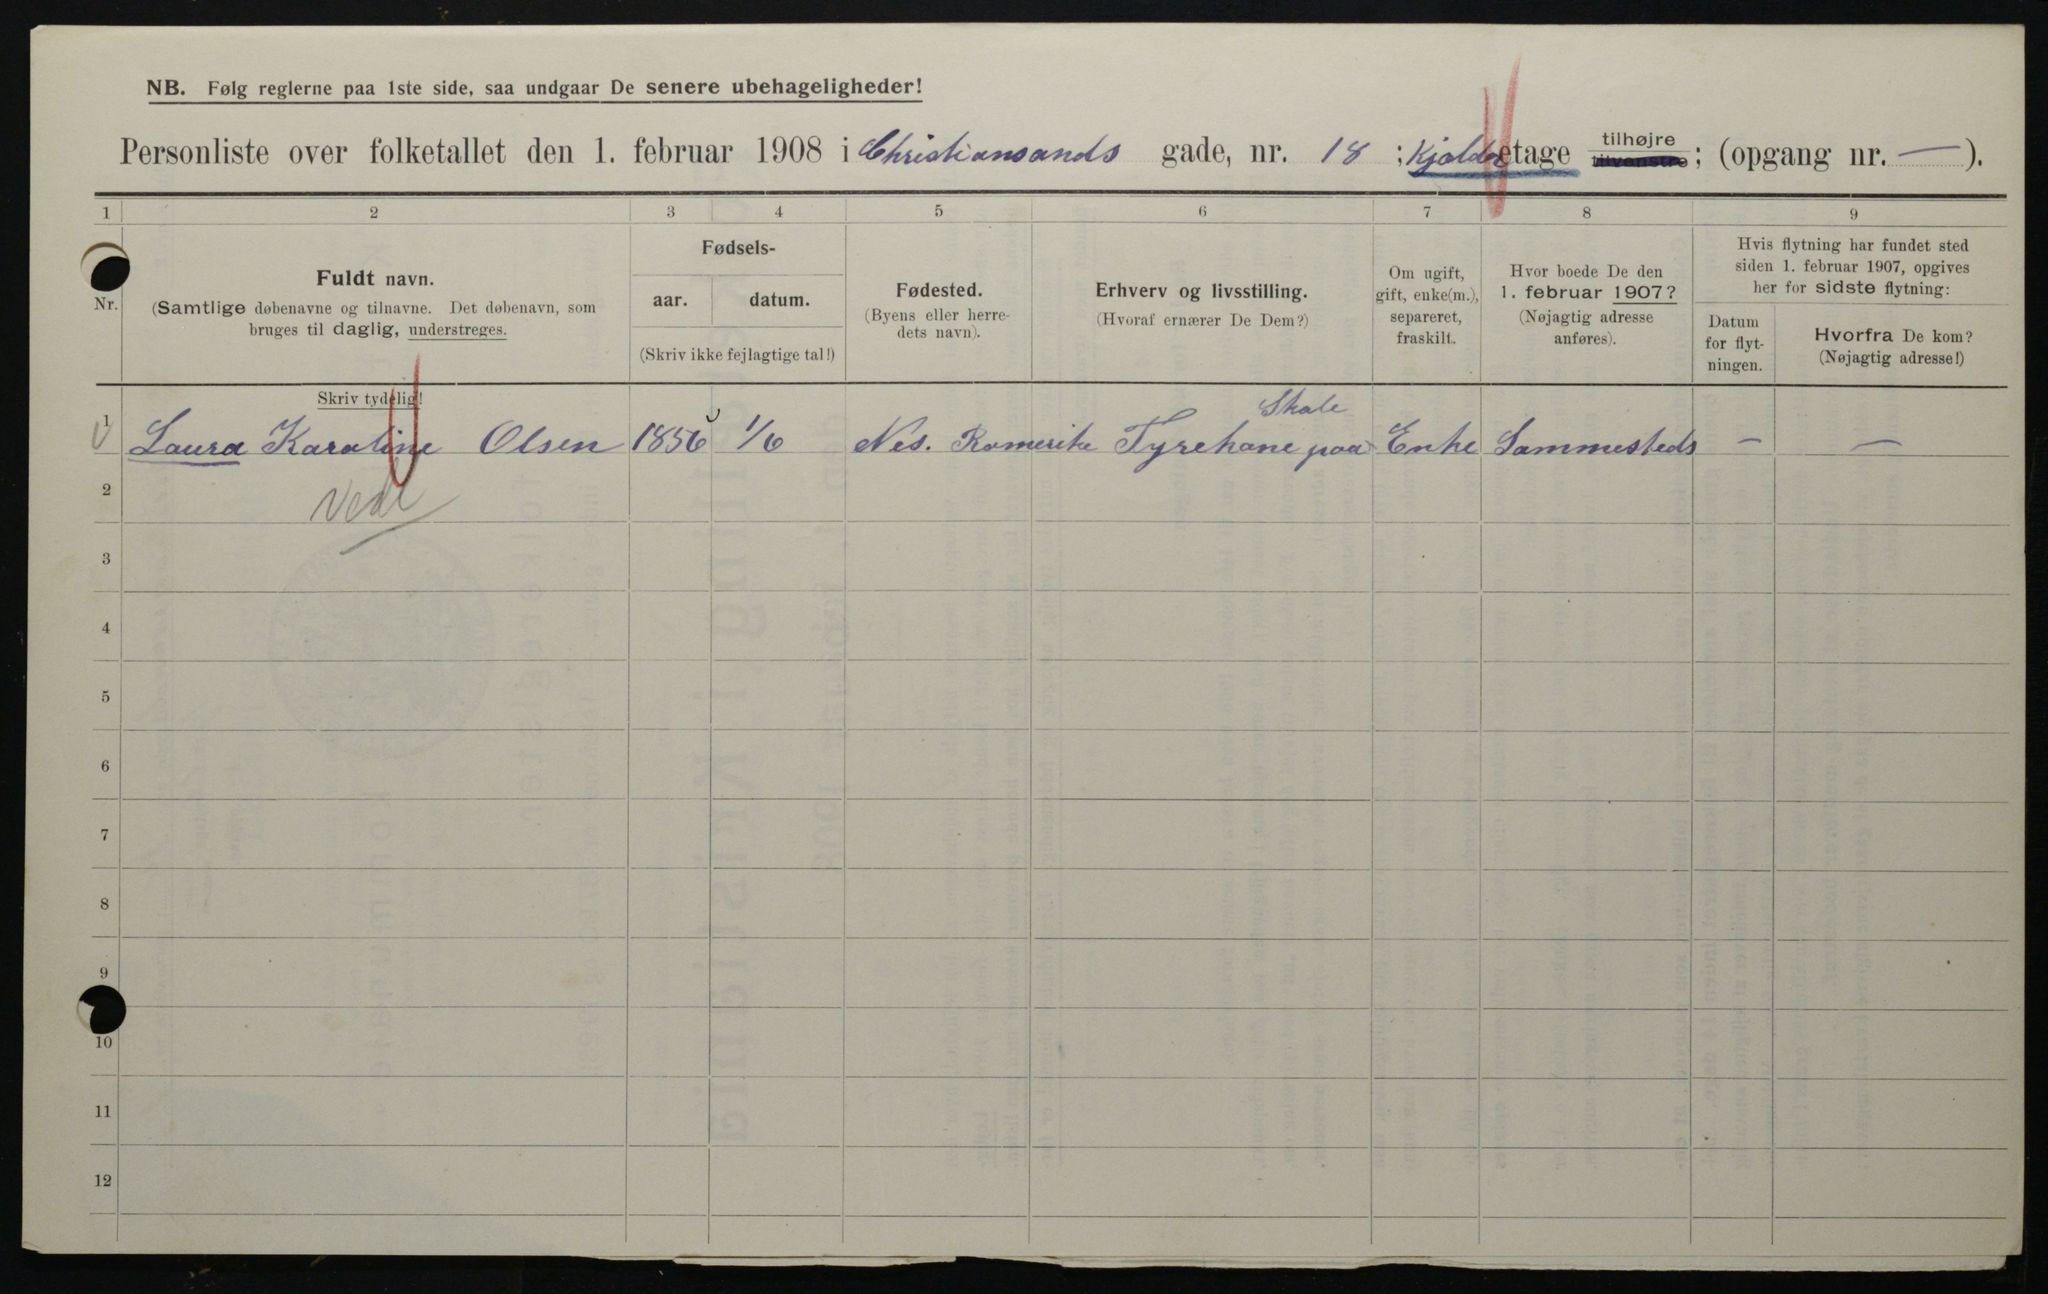 NB. Følg reglerne paa 1ste side, saa undgaar De senere ubehageligheder!
Personliste over folketallet den 1. februar 1908 i Christiansands gade, nr. 18 ; Kjelder etage tilhøjre tilvenstre ; (opgang nr. — ).
1 2 3 4 5 6 7 8 9
Nr.
Fuldt navn.
(Samtlige døbenavne og tilnavne. Det døbenavn, som
bruges til daglig, understreges.
Fødsels-
aar. datum.
(Skriv ikke fejlagtige tal!)
Fødested.
(Byens eller herre-
dets navn).
Erhverv og livsstilling.
(Hvoraf ernærer De Dem?)
Om ugift,
gift, enke(m.),
separeret,
fraskilt.
Hvor boede De den
1. februar 1907?
(Nøjagtig adresse
anføres).
Hvis flytning har fundet sted
siden 1. februar 1907, opgives
her for sidste flytning:
Datum
for flyt-
ningen.
Hvorfra De kom?
(Nøjagtig adresse!)
Skriv tydelig!
Skole
1 Laura Karoline Olsen 1856 1/6 Nes. Romerike Fyrekone paa Enke Sammesteds — —
2
3
4
5
6
7
8
9
10
11
12